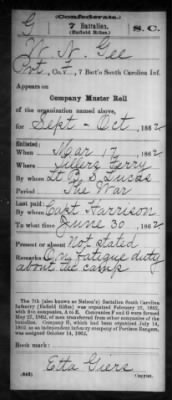 (Confederate.)
G 7 Battalion, S.C.
(Enfield Rifles)
W. N. Gee
Pvt, Co. F, 7 Batt'n South Carolina Inf.
Appears on
Company Muster Roll
of the organization named above,
for Sept - Oct, 1862
Enlisted:
When Mar 17, 1862
Where Tillers Ferry
By whom Lt B. S. Lucas
Period The War
Last paid:
By whom Capt Harrison
To what time June 30, 1862
Present or absent Not stated
Remarks: On fatigue duty
about the camp
The 7th (also known as Nelson's) Battalion South Carolina
Infantry (Enfield Rifles) was organized February 22, 1862,
with five companies, A to E. Companies F and G were formed
May 1862, of men transferred from other companies of the
battalion. Company H, which had been organized July 14,
1862, as an independent infantry company of Partisan Rangers,
was assigned October 14, 1862.
Book mark:
Etta Giers
(642) Copyist.